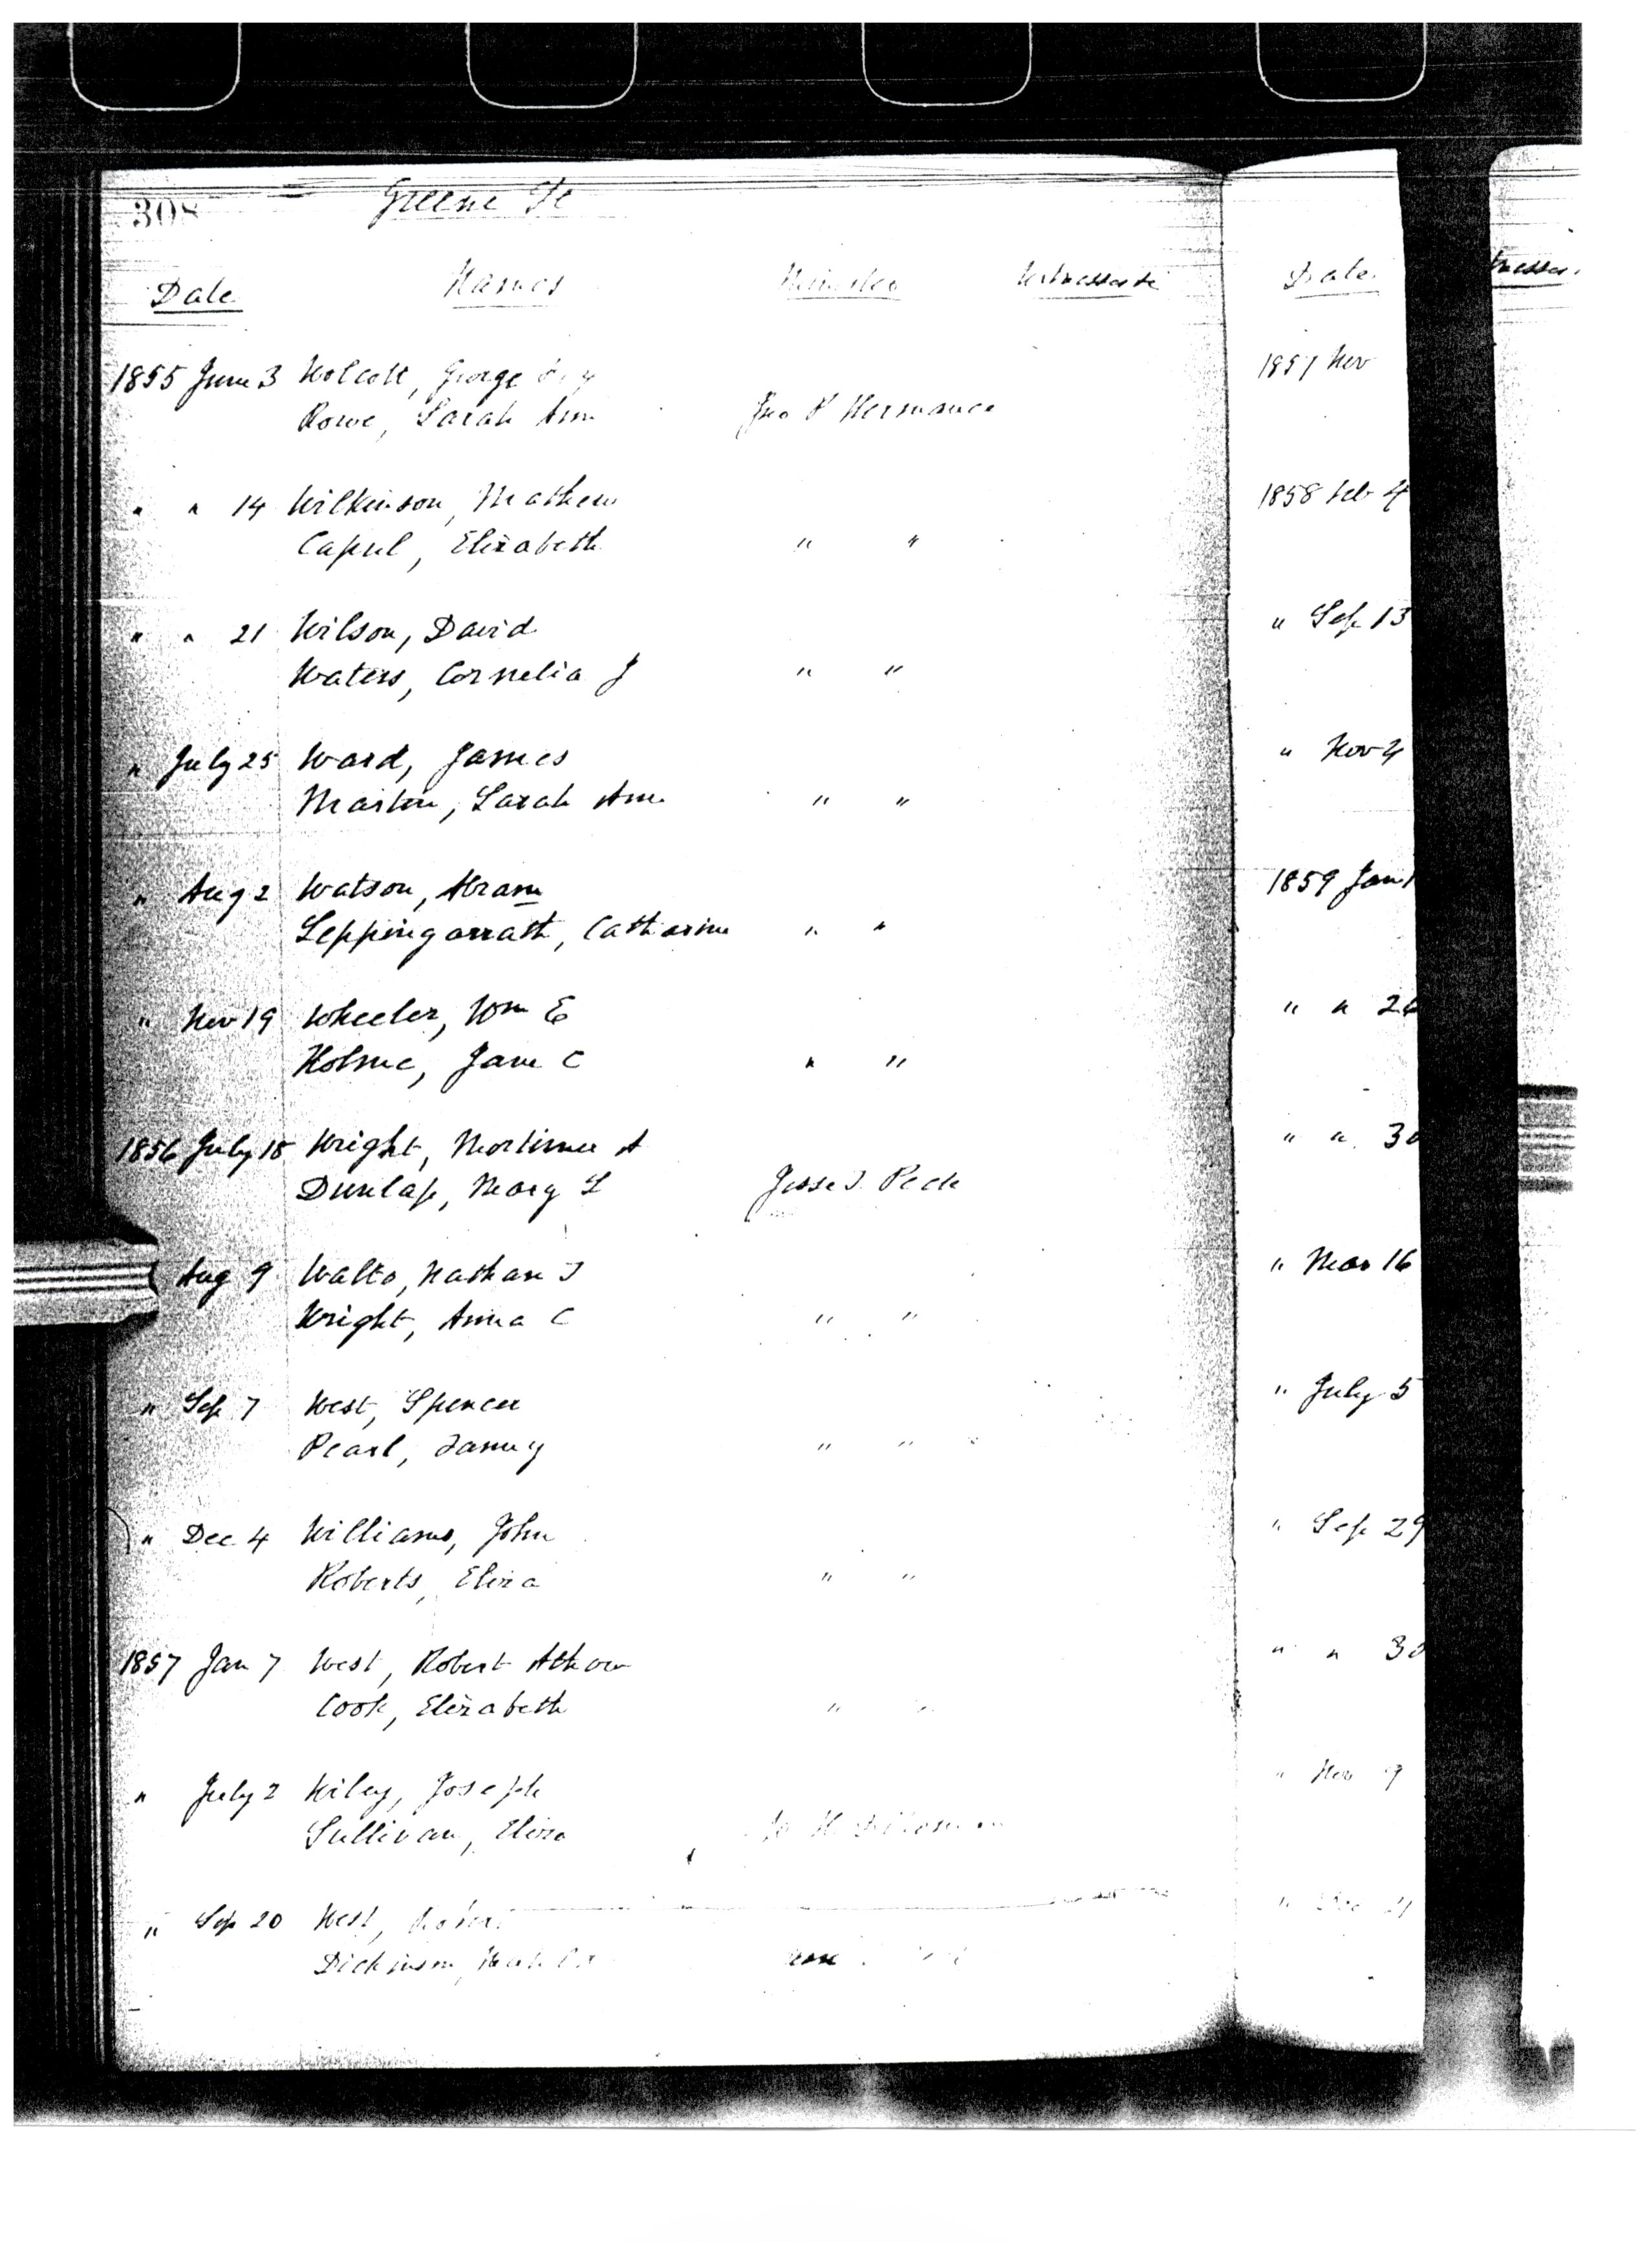 308
Greene St
Date Names Minister Witnesses
1855 June 3 Wolcott, George
Rowe, Sarah Ann Jno P Hermance
" " 14 Wilkinson, Mathew
Capul, Elizabeth " "
" " 21 Wilson, David
Waters, Cornelia J " "
" July 25 Ward, James
Martin, Sarah Ann " "
" Aug 2 Watson, Abram
Leppingarrath, Catharine " "
" Nov 19 Wheeler, Wm E
Holme, Jane C " "
1856 July 18 Wright, Mortimer A
Dunlap, Mary L Jesse T. Peck
Aug 9 Walto, Nathan T
Wright, Anna C " "
" Sep 7 West, Spencer
Pearl, Fanny " "
" Dec 4 Williams, John
Roberts, Eliza " "
1857 Jan 7 West, Robert
Cook, Elizabeth " "
" July 2 Wiley, Joseph
Sullivan, Eliza
" Sep 20 West, Robert
Dickinson,
Date
1857 Nov
1858 Feb 4
" Sep 13
" Nov 4
1859 Jan 1
" " 26
" " 30
" Mar 16
" July 5
" Sep 29
" " 30
" Nov 9